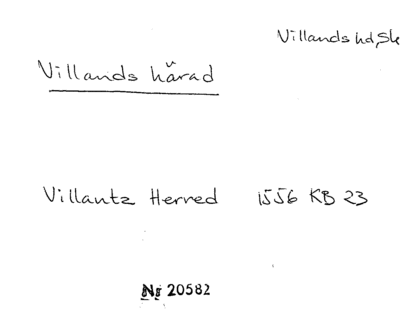 Villands hd, Sk
Villands härad
Villantz Herred 1556 KB 23
Ns 20582